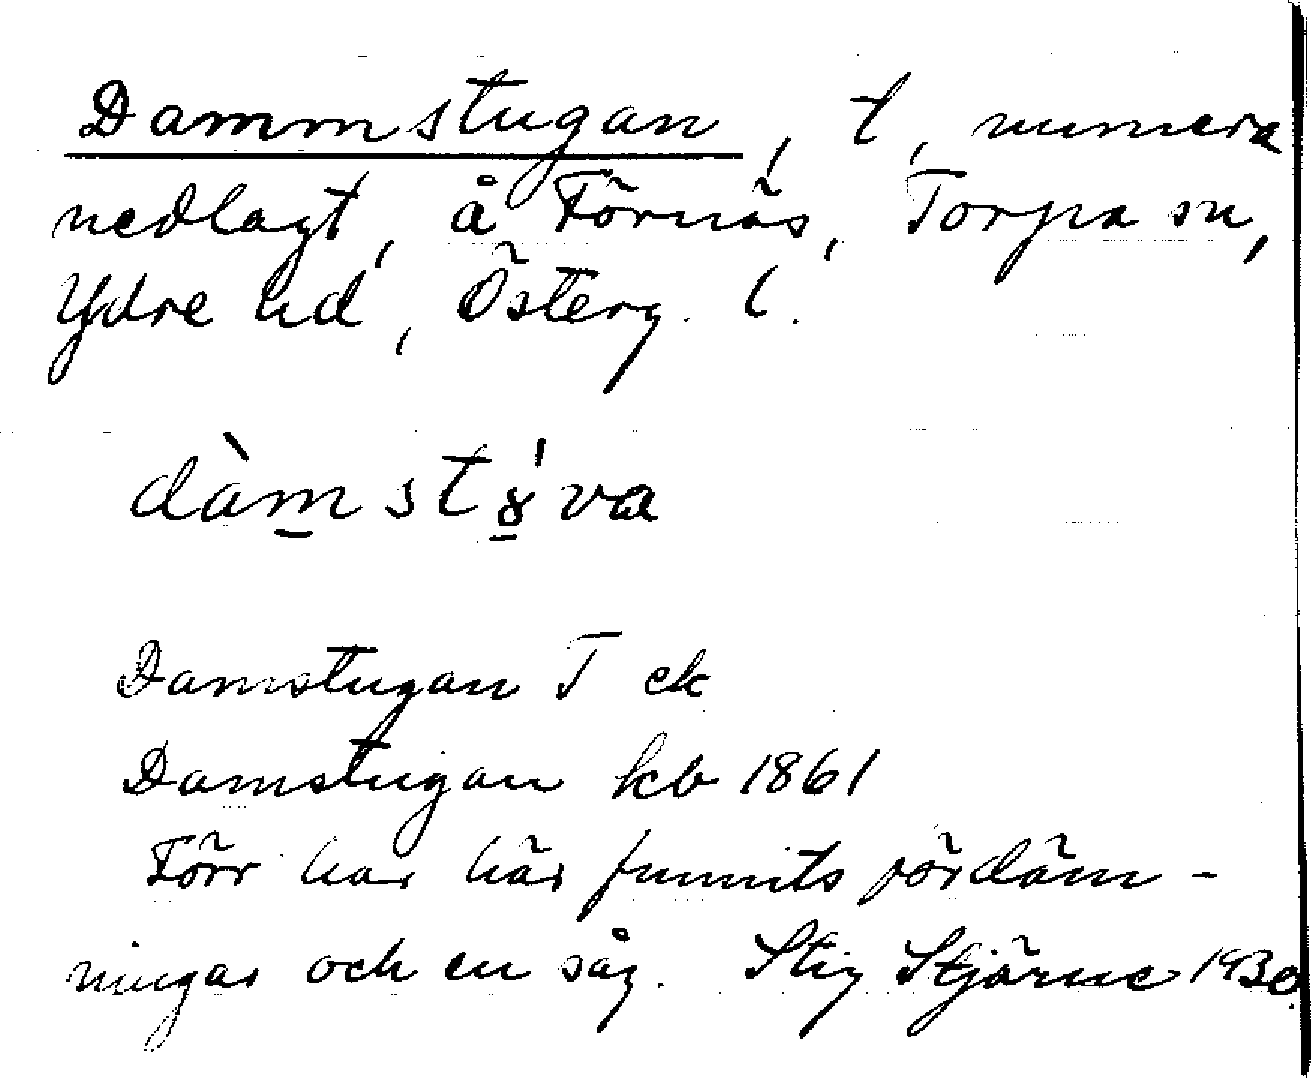 Dammstugan, t, numera
nedlagt, å Förnäs, Torpa sn,
Ydre hd, Österg. l.
dàmstȣ́va
Damstugan T ek
Damstugan kb 1861
Förr har här funnits fördäm-
ningar och en såg. Stig Stjärne 1930